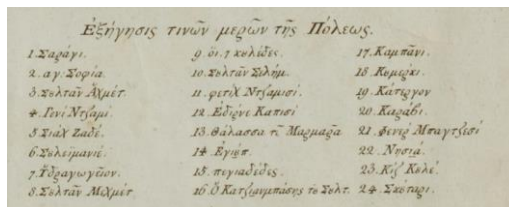 Ἐξήγησις τινῶν μερῶν τῆς Πόλεως.
1. Σαράγι.
2. αγ. Σοφία.
3. Σουλτὰν Ἀχμέτ.
4. Γενὶ Ντζαμί.
5. Σιὰχ Ζαδέ.
6. Σουλεϊμανιέ.
7. Ὑδραγωγεῖον.
8. Σουλτὰν Μεχμέτ.
9. ὁι. 7 κουλέδες.
10. Σουλτὰν Σελήμ.
11. φετὶχ Ντζαμισί.
12. Ἐδιρνὲ Καπισί
13. Θάλασσα τοῦ Μαρμαρᾶ
14. Ἐγιούπ.
15. πεγιαδέδες.
16. Ὁ Κατζιρεμπάσης τοῦ Σουλτ.
17. Καμπάνι.
18. Κομέρκι.
19. Κάτεργον
20. Καράβι.
21. Φενὲρ Μπαγτζεσί
22. Νησιά.
23. Κὶζ Κουλέ.
24. Σκούταρι.